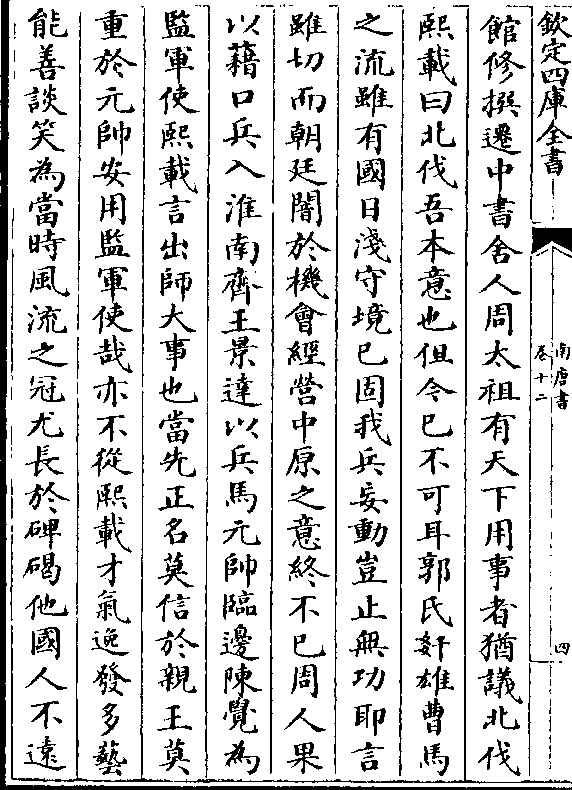 欽定四庫全書
南唐書
卷十二
四
館修撰遷中書舍人周太祖有天下用事者猶議北伐
熙載曰北伐吾本意也但今已不可耳郭氏奸雄曹馬
之流雖有國日淺守境已固我兵妄動豈止無功耶言
雖切而朝廷闇於機會經營中原之意終不已周人果
以藉口兵入淮南齊王景達以兵馬元帥臨邊陳覺為
監軍使熙載言出師大事也當先正名莫信於親王莫
重於元帥安用監軍使哉亦不從熙載才氣逸發多藝
能善談笑為當時風流之冠尤長於碑碣他國人不遠